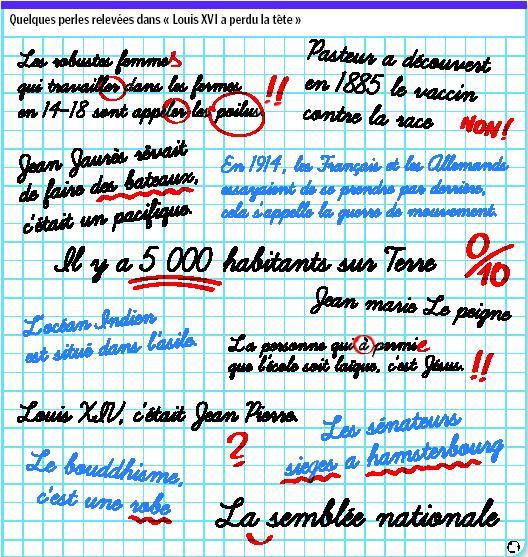 Quelques perles relevées dans « Louis XVI a perdu la tête »
Les robustes femmes
qui travailler dans les fermes
en 14-18 sont appller les poilus
!!
Pasteur a découvert
en 1885 le vaccin
contre la race
NON!
Jean Jaurès rêvait
de faire des bateaux,
c'était un pacifique.
En 1914, les Français et les Allemands
essayaient de se prendre par derrière,
cela s'appelle la guerre de mouvement.
Il y a 5 000 habitants sur Terre
0/10
Jean marie Le peigne
L'océan Indien
est situé dans l'asile.
La personne qui à permie
que l'école soit laïque, c'est Jésus.
!!
Louis XIV, c'était Jean Pierre.
?
Les sénateurs
sieges a hamsterbourg
Le bouddhisme,
c'est une robe
La semblée nationale